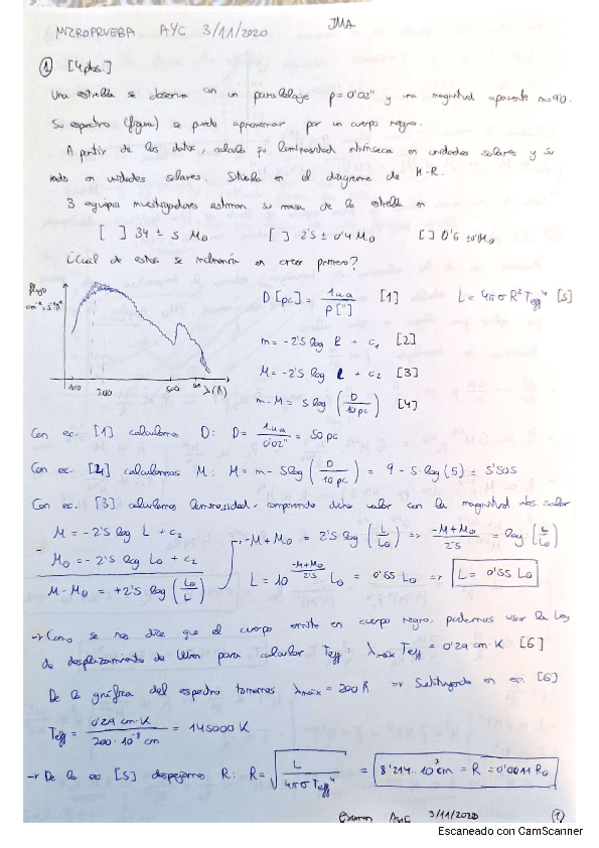 MICROPRUEBA AYC 3/11/2020 JMA
① [4ptos.]
Una estrella se observa con un paralelaje p=0'02" y una magnitud aparente m=9'0.
Su espectro (figura) se puede aproximar por un cuerpo negro.
A partir de los datos, calcula su luminosidad intrínseca en unidades solares y su
radio en unidades solares. Sitúala en el diagrama de H-R.
3 equipos investigadores estiman su masa de la estrella en
[ ] 34 ± 5 M⊙ [ ] 2'5 ± 0'4 M⊙ [ ] 0'6 M⊙
¿Cuál de estos se en creer primero?
cm⁻² s⁻¹
100 200 500 λ(Å)
D [pc] = 1 u.a / p["] [1] L = 4πσ R² Teff⁴ [5]
m = -2'5 log l + c₁ [2]
M = -2'5 log L + c₂ [3]
m-M = 5 log (D / 10 pc) [4]
Con ec. [1] calculamos D: D = 1 u.a / 0'02" = 50 pc
Con ec. [4] calculamos M: M = m - 5 log (D / 10 pc) = 9 - 5·log(5) = 5'505
Con ec. [3] calculamos luminosidad, comparando dicho valor con la magnitud abs solar
M = -2'5 log L + c₂
M⊙ = -2'5 log L⊙ + c₂
M - M⊙ = +2'5 log (L⊙ / L)
-M + M⊙ = 2'5 log (L / L⊙) => (-M+M⊙) / 2'5 = log (L / L⊙)
L = 10^((-M+M⊙) / 2'5) L⊙ = 0'55 L⊙ => L = 0'55 L⊙
-> Como se nos dice que el cuerpo emite en cuerpo negro, podemos usar la Ley
de desplazamiento de Wien para calcular Teff: λmáx Teff = 0'29 cm·K [6]
De la gráfica del espectro tomamos λmáx = 200 Å => Sustituyendo en ec. [6]
Teff = 0'29 cm·K / 200·10⁻⁸ cm = 145000 K
-> De la ec [5] despejamos R: R = √(L / 4πσ Teff⁴) = 8'214·10⁷ cm = R = 0'0011 R⊙
Examen AyC 3/11/2020 ①
Escaneado con CamScanner